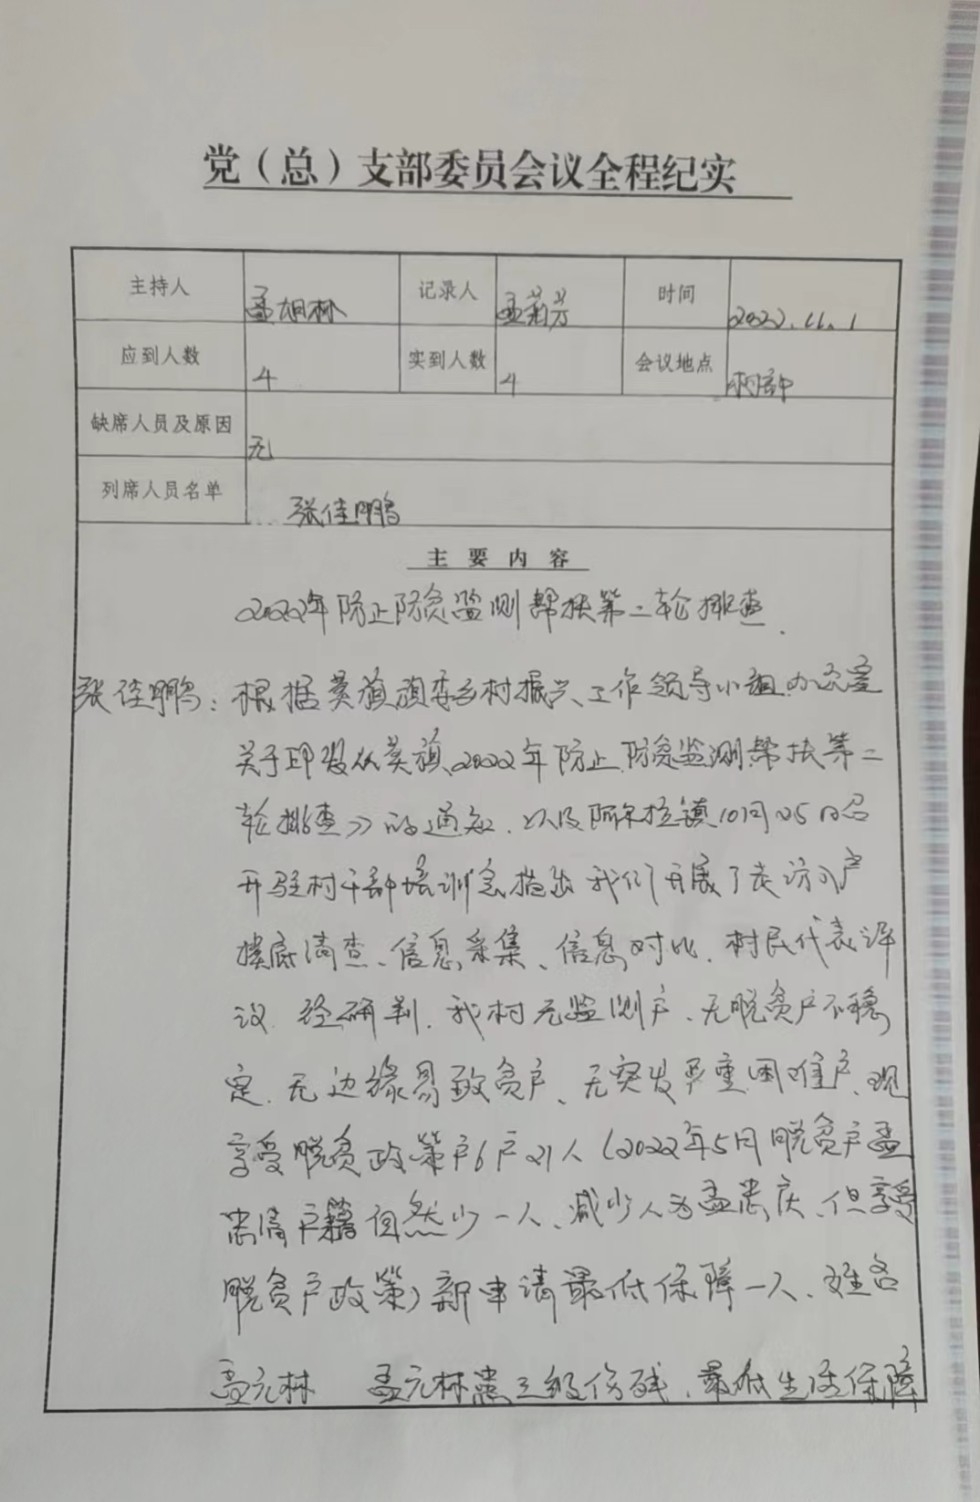 党（总）支部委员会议全程纪实
主持人 孟胡林 记录人 孟莉芳 时间 2022.11.1
应到人数 4 实到人数 4 会议地点 村部
缺席人员及原因 无
列席人员名单 张佳鹏
主要内容
2022年防止防贫监测帮扶第二轮排查.
张佳鹏：根据莫旗旗委乡村振兴工作领导小组办公室
关于印发《莫旗2022年防止防贫监测帮扶第二
轮排查》的通知，以及阿尔拉镇10月25日召
开驻村干部培训会指出 我们开展了走访入户
摸底清查、信息采集、信息对比、村民代表评
议 经研判，我村无监测户、无脱贫户不稳
定、无边缘易致贫户、无突发严重困难户、现
享受脱贫政策户6户21人（2022年5月脱贫户孟
户籍自然少一人、减少人为孟忠庆、但享受
脱贫户政策）新申请最低保障一人、姓名
孟元林 孟元林患三级伤残，最低生活保障